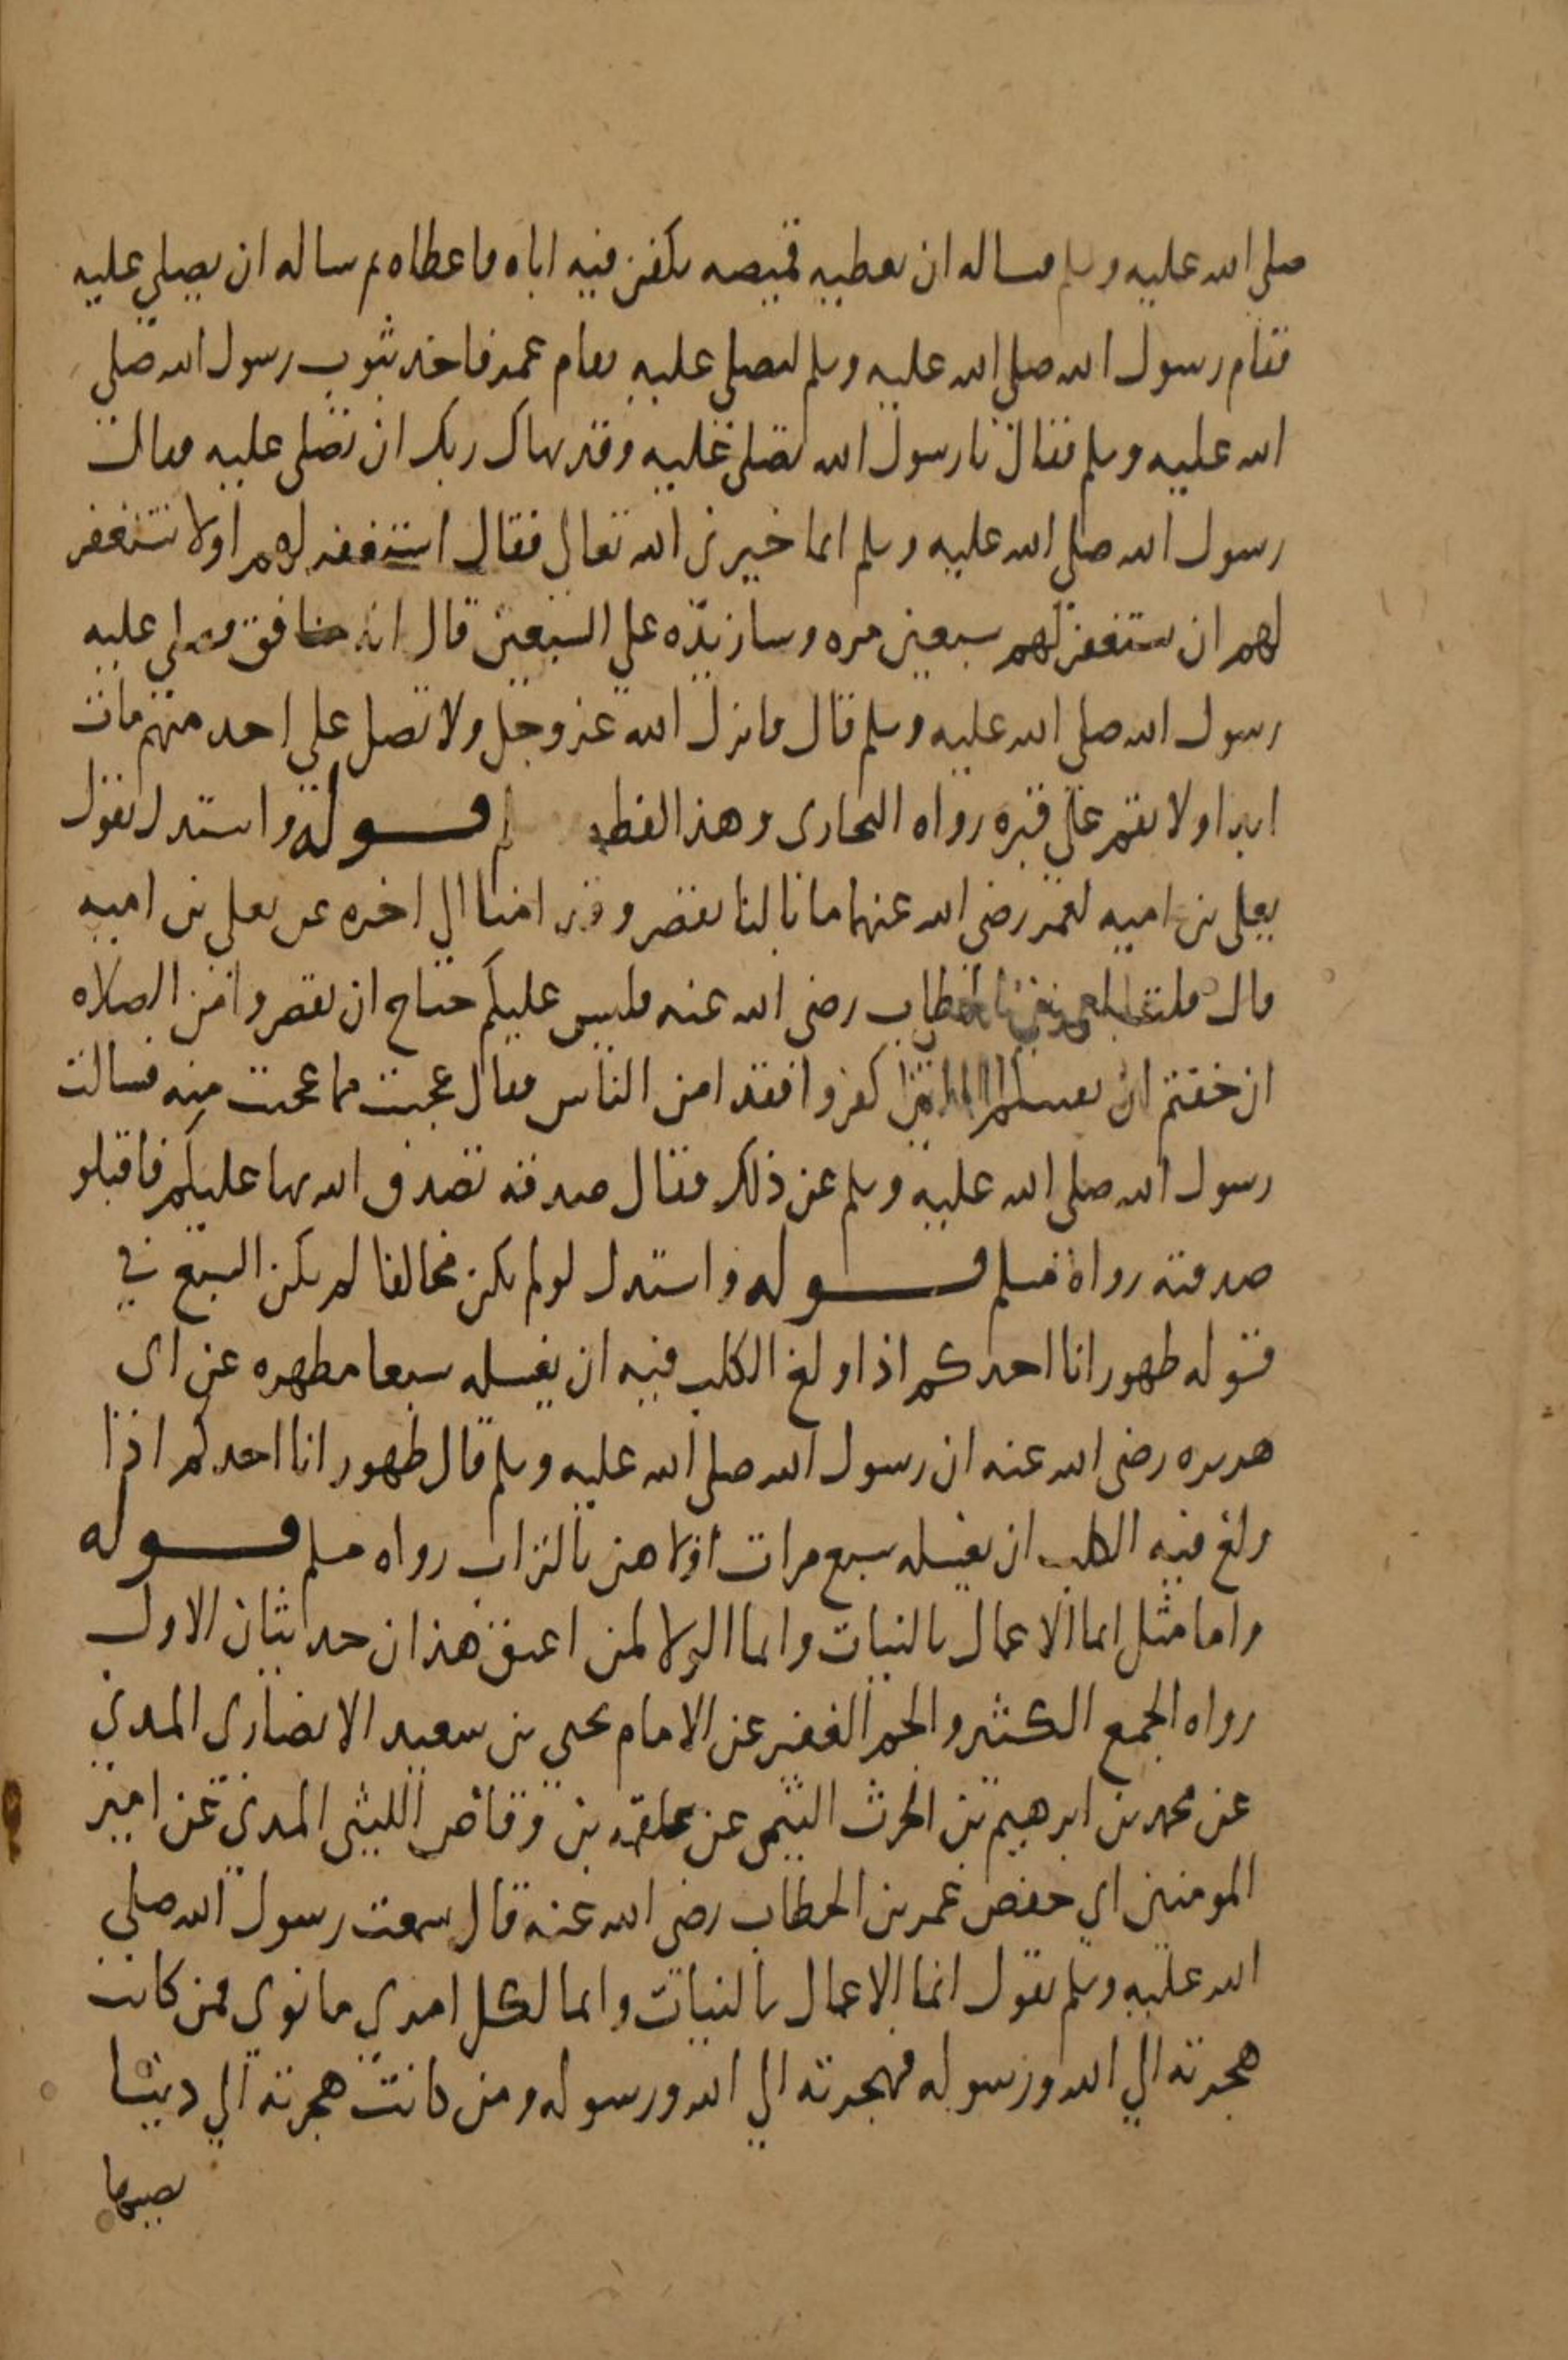 صلى الله عليه وسلم فساله ان يعطيه قميصه يكفن فيه اباه فاعطاه ثم ساله ان يصلي عليه
فقام رسول الله صلى الله عليه وسلم ليصلي عليه فقام عمر فاخذ بثوب رسول الله صلى
الله عليه وسلم فقال يا رسول الله تصلي عليه وقد نهاك ربك ان تصلي عليه فقال
رسول الله صلى الله عليه وسلم انما خيرني الله تعالى فقال استغفر لهم او لا تستغفر
لهم ان تستغفر لهم سبعين مره وسازيده على السبعين قال انه منافق فصلى عليه
رسول الله صلى الله عليه وسلم قال فانزل الله عز وجل ولا تصل على احد منهم مات
ابدا ولا تقم على قبره رواه البخاري وهذا لفظه قوله واستدل بقول
يعلى بن اميه لعمر رضي الله عنهما ما بالنا نقصر وقد امنا الى اخره عن يعلى بن اميه
قال قلت لعمر بن الخطاب رضي الله عنه فليس عليكم جناح ان تقصروا من الصلاه
ان خفتم ان يفتنكم الذين كفروا فقد امن الناس فقال عجبت مما عجبت منه فسالت
رسول الله صلى الله عليه وسلم عن ذلك فقال صدقه تصدق الله بها عليكم فاقبلو
صدقته رواه مسلم قوله واستدل لو لم يكن مخالفا لم يكن السبع في
قوله طهور انا احدكم اذا ولغ الكلب فيه ان يغسله سبعا مطهره عن ابي
هريره رضي الله عنه ان رسول الله صلى الله عليه وسلم قال طهور انا احدكم اذا
ولغ فيه الكلب ان يغسله سبع مرات اولاهن بالتراب رواه مسلم قوله
واما مثل انما الاعمال بالنيات وانما الولا لمن اعتق هذان حديثان الاول
رواه الجمع الكثير والجم الغفير عن الامام يحيى بن سعيد الانصاري المدني
عن محمد بن ابرهيم بن الحرث التيمي عن علقمه بن وقاص الليثي المدني عن امير
المومنين ابي حفص عمر بن الخطاب رضي الله عنه قال سمعت رسول الله صلى
الله عليه وسلم يقول انما الاعمال بالنيات وانما لكل امري ما نوى فمن كانت
هجرته الى الله ورسوله فهجرته الى الله ورسوله ومن كانت هجرته الى دنيا
يصيبها